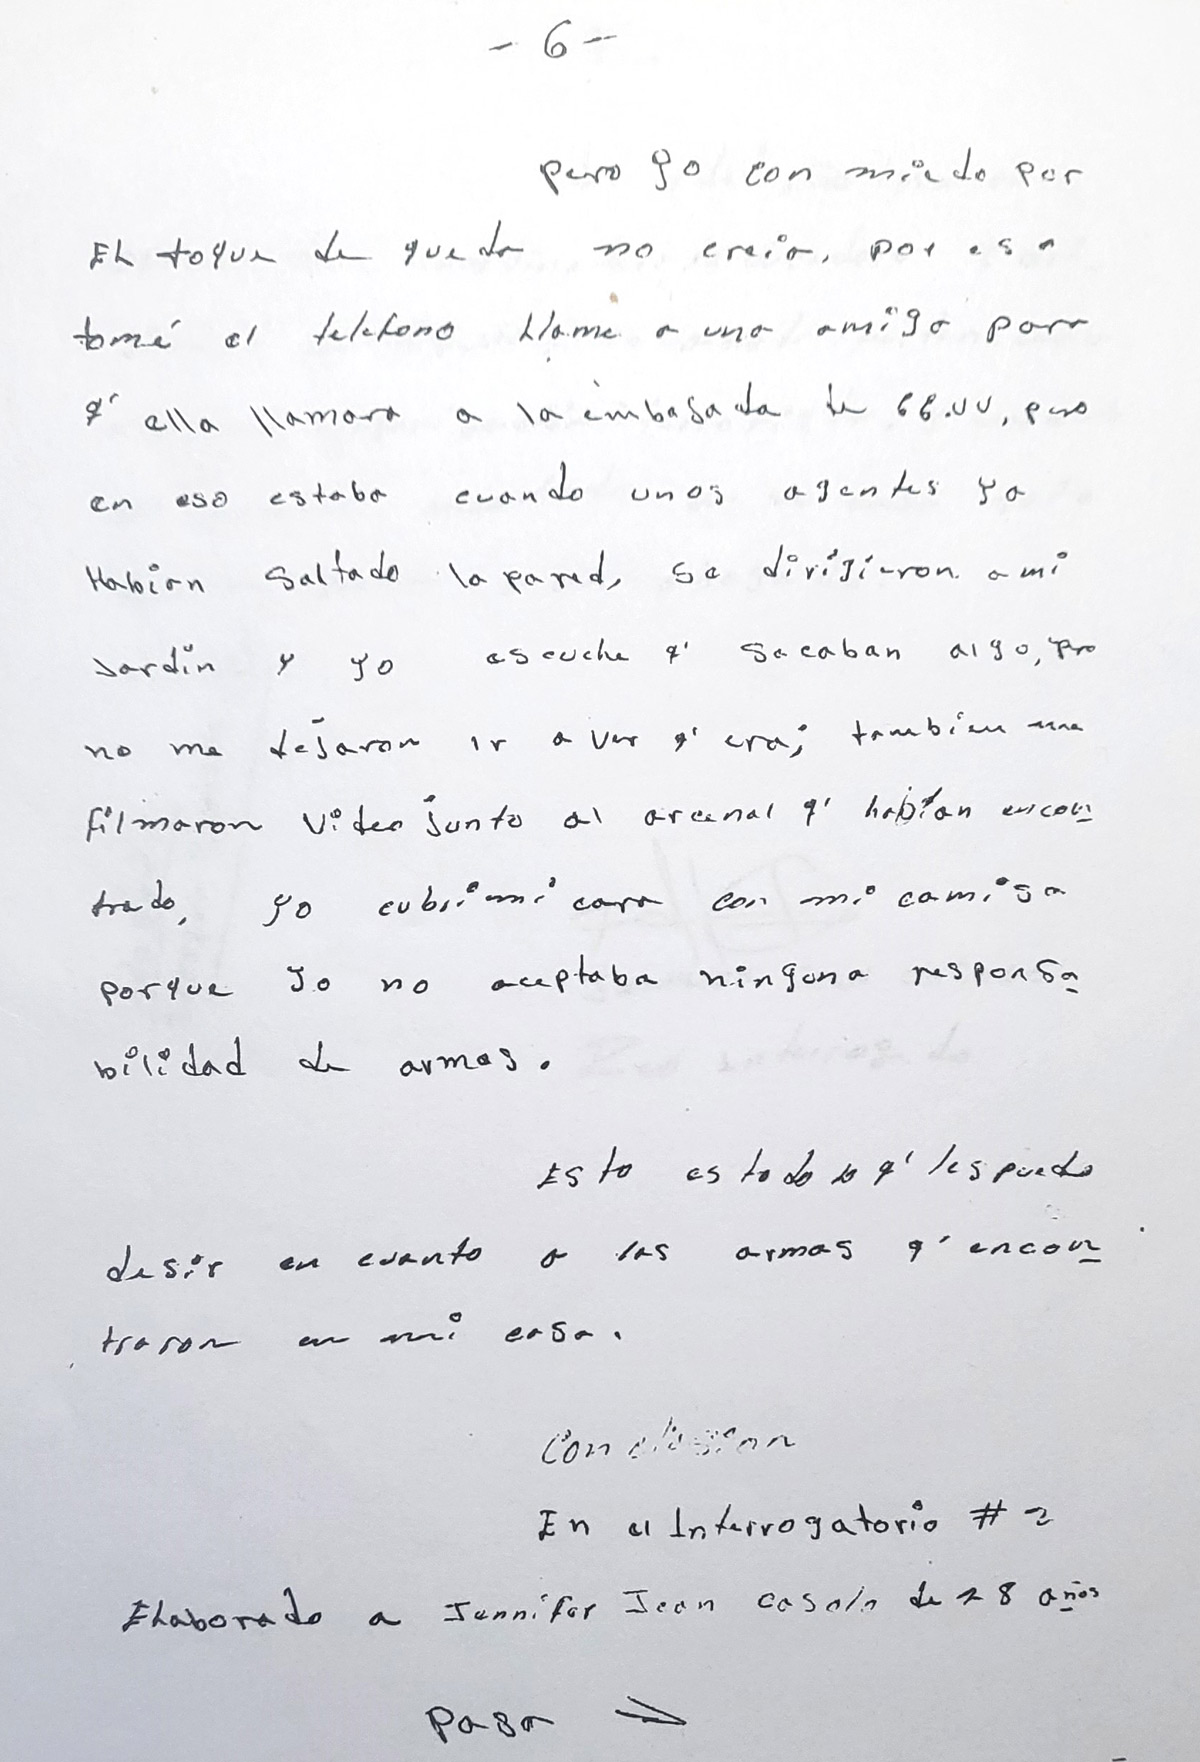 - 6 -
pero yo con miedo por
EL toque de queda no creia, por eso
tomé el telefono LLame a una amiga para
q' ella llamara a la embasada de EE.UU, pero
en eso estaba cuando unos agentes ya
Habian Saltado la pared, se dirigieron a mi
Jardin y yo escuche q' sacaban algo, pro
no me dejaron ir a ver q' era; tambien me
filmaron Video junto al arcenal q' habian encon
trado, yo cubri mi cara con mi camisa
porque yo no aceptaba ninguna responsa
bilidad de armas.
Esto es todo lo q' les puedo
desir en cuanto a las armas q' encon
traron en mi casa.
Conclussion
En el Interrogatorio # 2
ELaborado a Jennifer Jean Casolo de 28 años
Pasa →